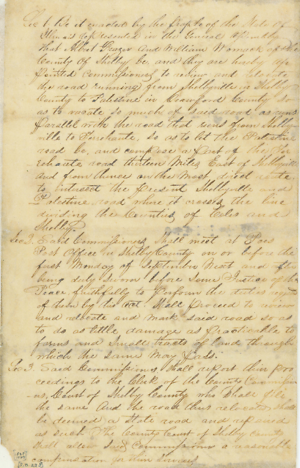 Sec 1 Be it enacted by the People of the State of
Illinois represented in the General Assembly
That Albert Frazer and William Warnock of the
County of Shelby be and they are hereby ap-
pointed Commissioners to review and relocate
the road running from Shelbyville in Shelby
County to Palestine in Crawford County so
as to vacate so much of said road as runs
Parallel with the road that runs from Shelby
ville to
road be, and
road thirteen Miles East of
and from thence on the most direct route
to intersect the Present Shelbyville and
Palestine road where it crosses the line
dividing the Counties of Coles and
Shelby
Sec 2 Said Commissioners shall meet at
Post Office in Shelby County on or before the
first Monday of September next and after
being duly sworn by some Justice of the
Peace faithfully to perform the duties
of them by this act shall proceed to review
and relocate and mark said road so as
to do as little damage as practicable to
farms and Small tracts of land through
which the same may pass.
Sec 3 Said Commissioners shall report their pro
ceedings to the Clerk of the County Commission
ers Court of Shelby County who shall file
the same and the road thus relocated shall
be deemed a State road and
as such The County Court of Shelby County
shall allow said Commissioners a reasonable
compensation for their Services